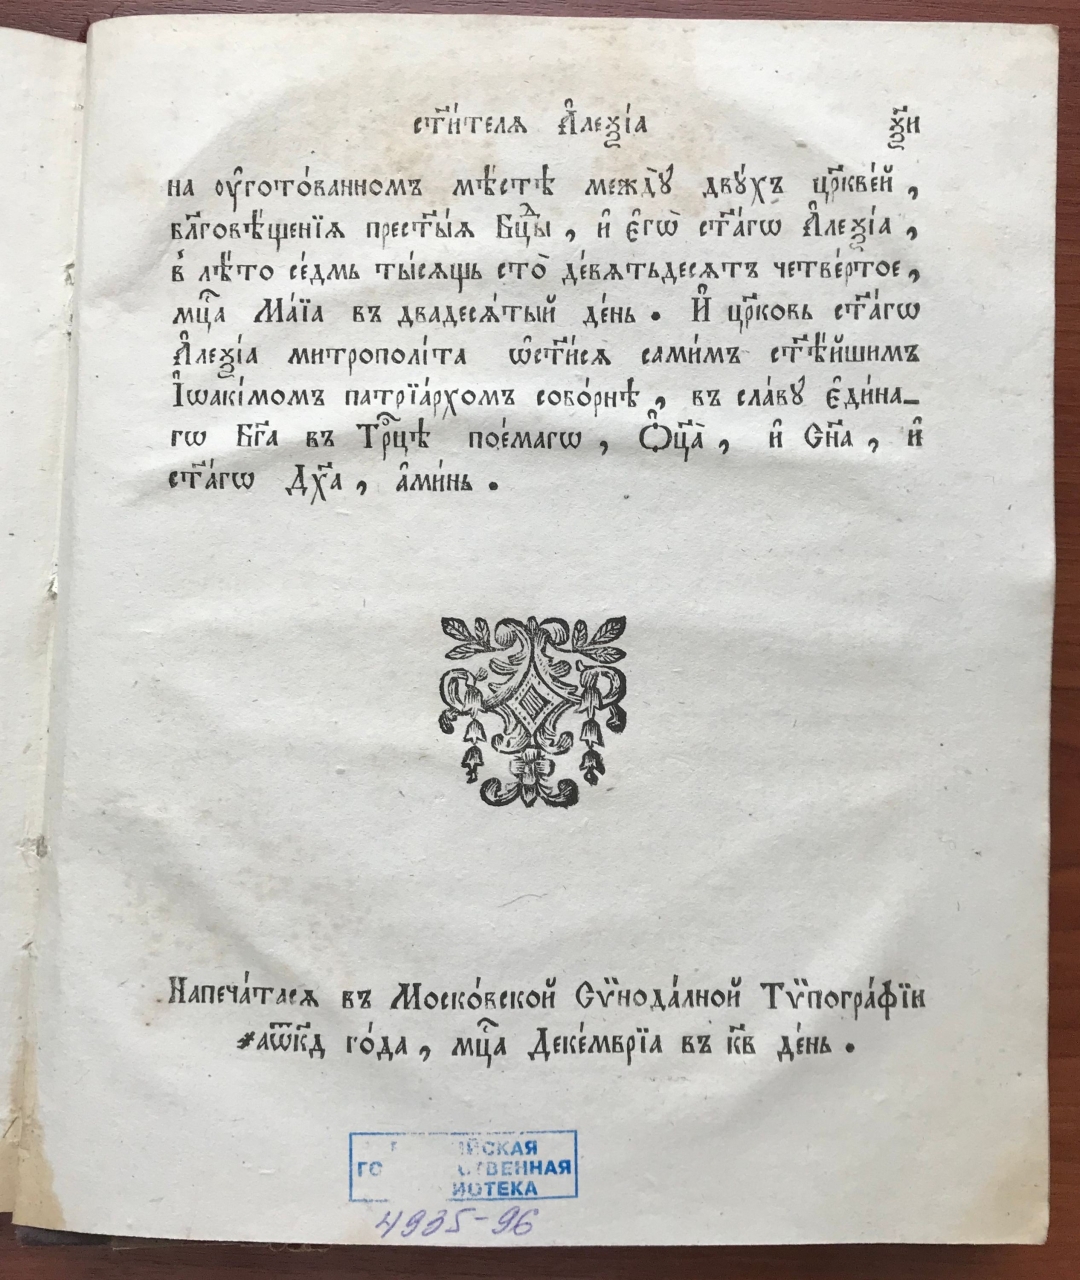 ст҃и́телѧ А҆леѯі́а ѯ҃и
на ᲂу҆гото́ванномъ мѣ́стѣ междꙋ̀ двꙋ́хъ цр҃кве́й,
бл҃говѣ́щенїѧ прест҃ы́ѧ Бцⷣы, и҆ є҆гѡ̀ ст҃а́гѡ А҆леѯі́а,
в̾ лѣ́то се́дмь ты́сѧщь сто̀ де́вѧтьдесѧтъ четве́ртое,
мцⷭ҇а Ма́їа въ двадесѧ́тый де́нь. И҆ цр҃ковь ст҃а́гѡ
А҆леѯі́а митрополі́та ѡ҆ст҃и́сѧ сами́мъ ст҃ѣ́йшимъ
І҆ѡакі́момъ патрїа́рхомъ собо́рнѣ, въ сла́вꙋ є҆ди́на-
гѡ Бг҃а въ Трⷪ҇цѣ пое́магѡ, Ѻ҆ц҃а̀, и҆ Сн҃а, и҆
ст҃а́гѡ Дх҃а, а҆ми́нь.
Напеча́тасѧ въ Моско́вской Сѷнода́лной Тѷпогра́фїи
҂аѿк҃д го́да, мцⷭ҇а Деке́мврїа въ к҃в де́нь.
4935-96